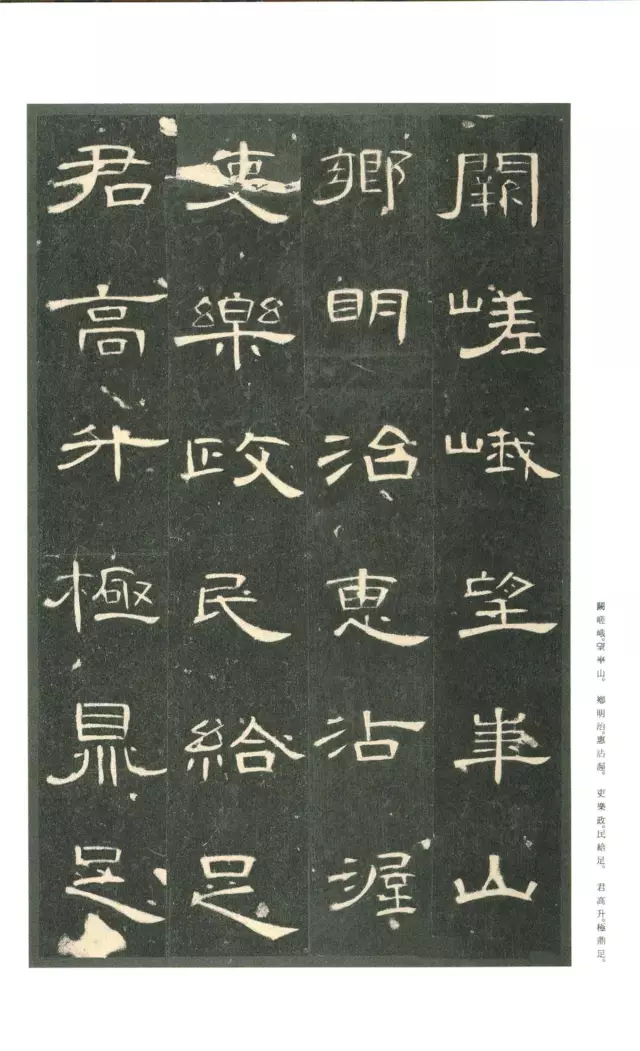 闕嵯峨望華山
鄉明治惠沾渥
吏樂政民給足
君高升極鼎足
闕嵯峨。望華山。鄉明治。惠沾渥。吏樂政。民給足。君高升。極鼎足。